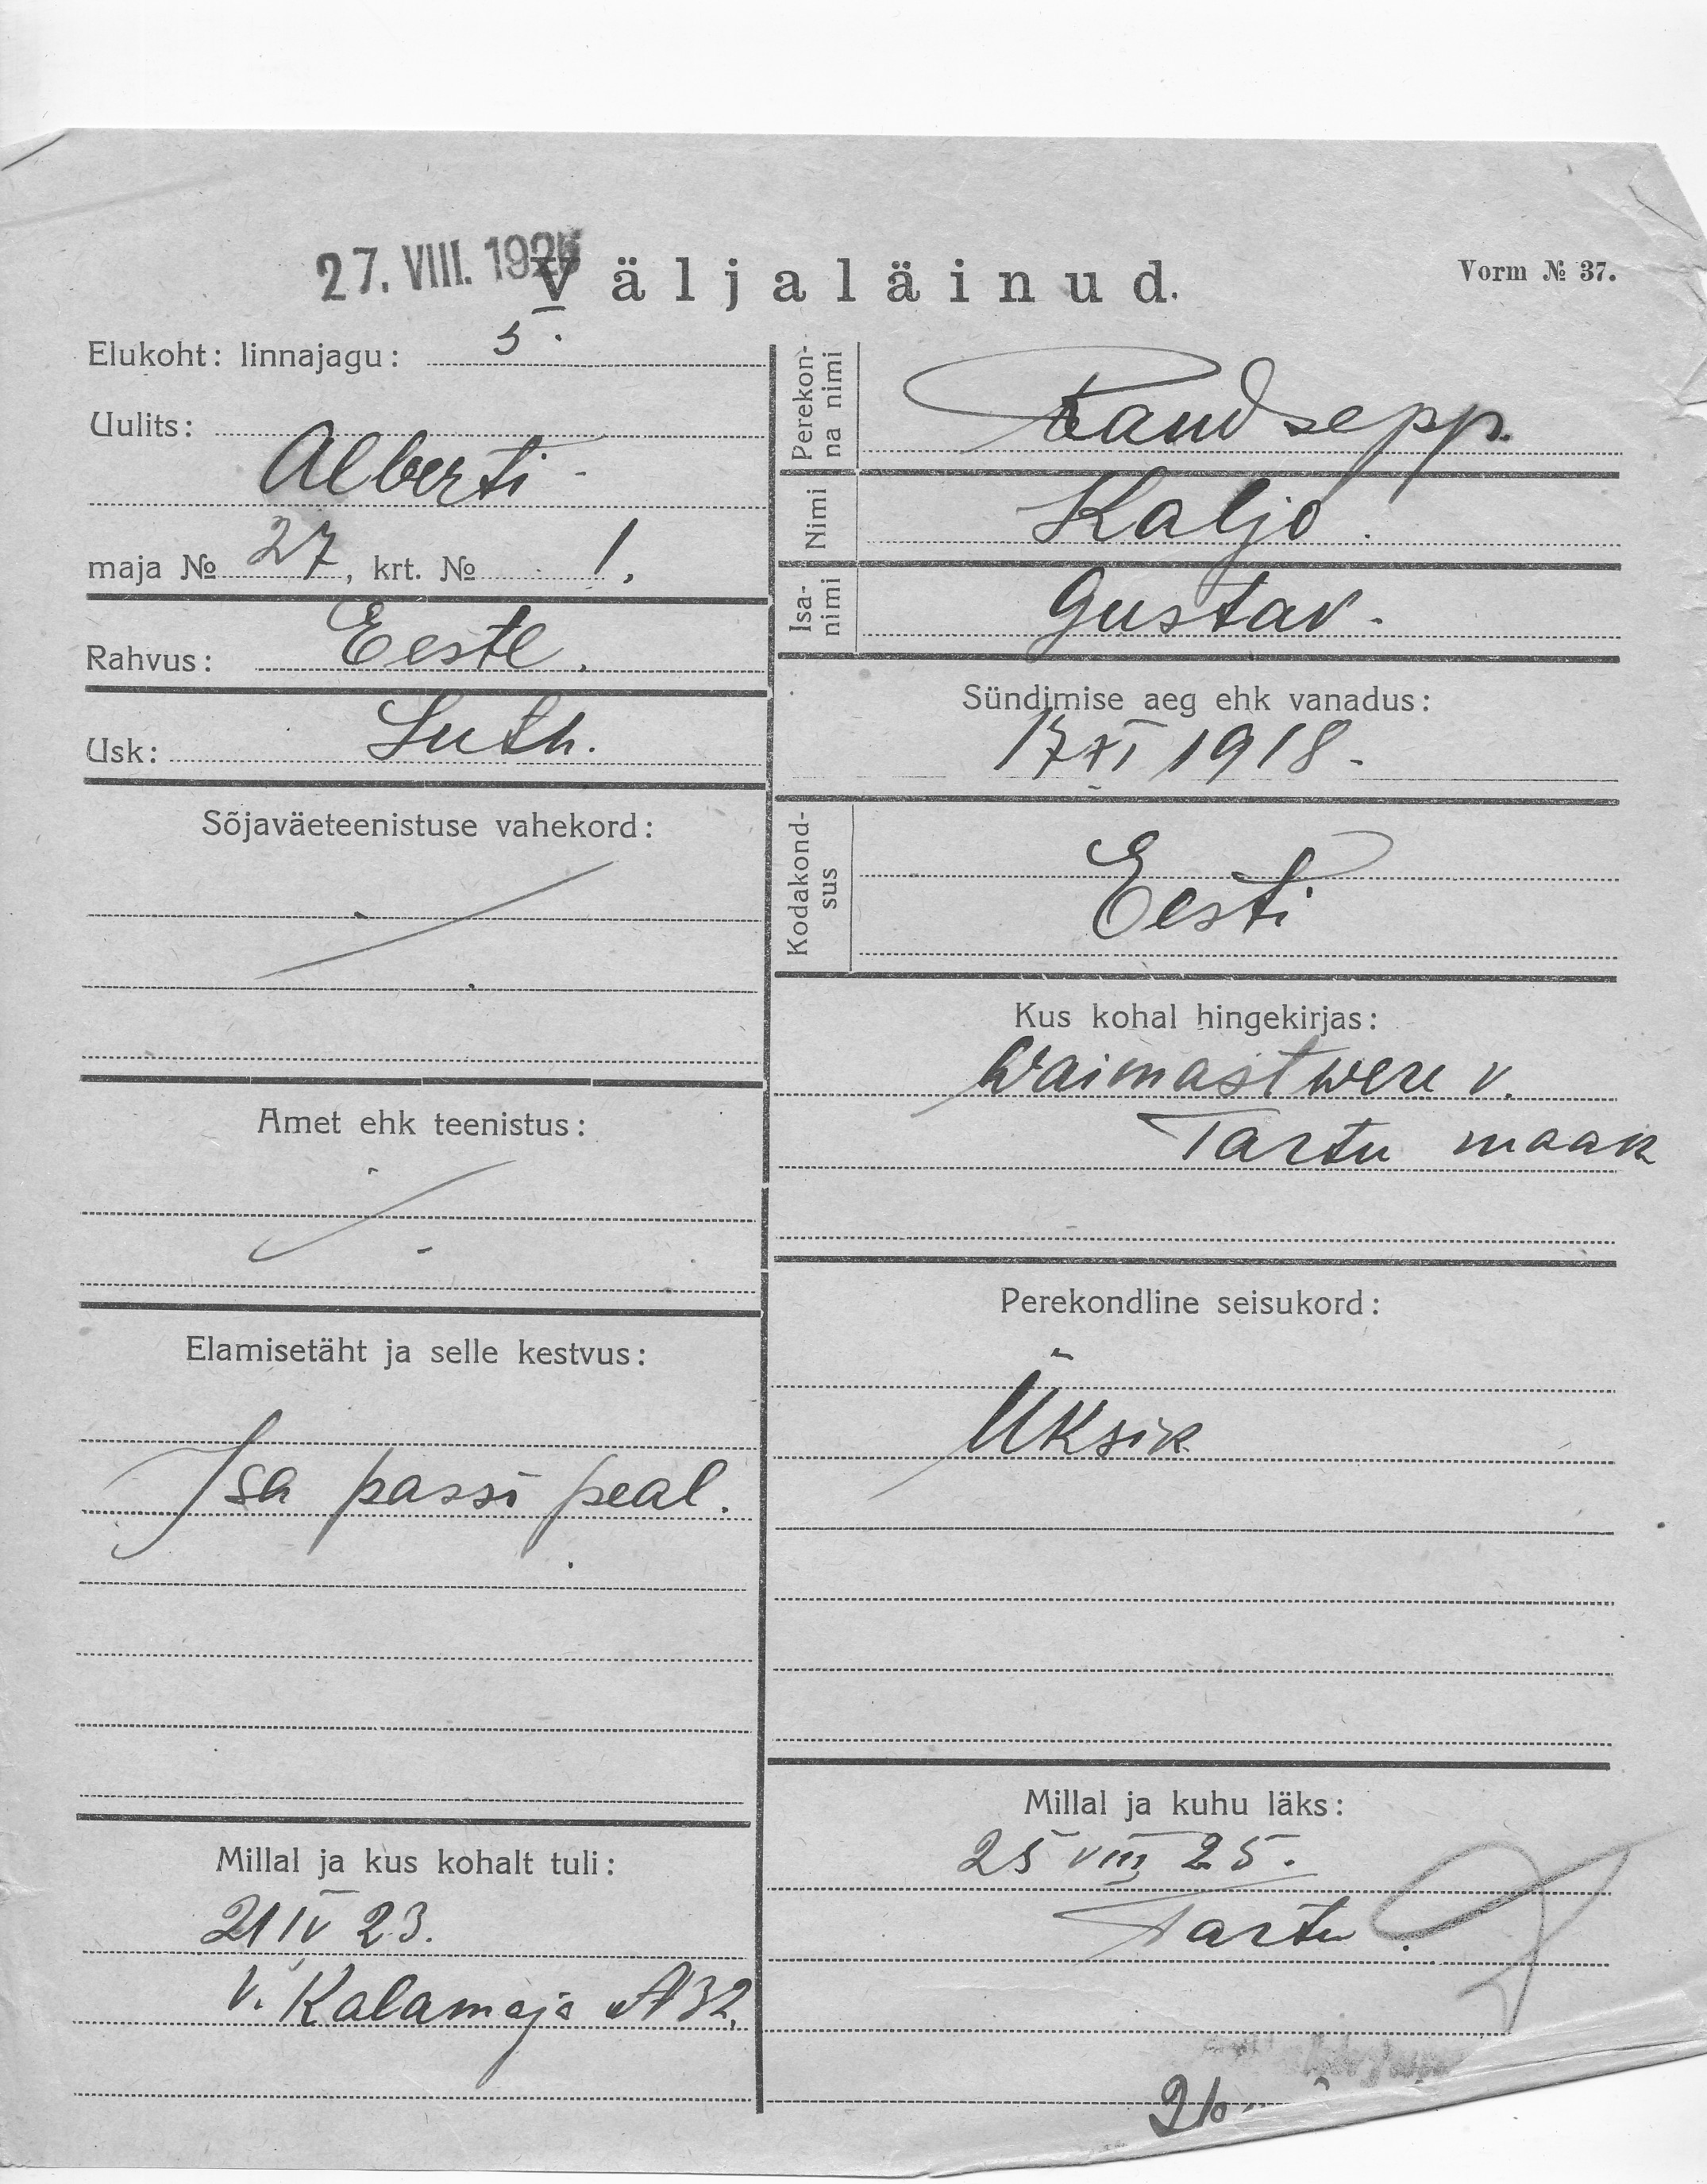 27. VIII. 1925
Väljaläinud.
Vorm № 37.
Elukoht: linnajagu: 5.
Uulits:
Alberti -
maja № 27, krt. № 1.
Rahvus: Eestl.
Usk: Luth.
Sõjaväeteenistuse vahekord:
Amet ehk teenistus:
Elamisetäht ja selle kestvus:
Isa passi peal.
Millal ja kus kohalt tuli:
21 IV 23.
V. Kalamaja № 32.
Perekon-
na nimi
Raudsepp.
Nimi
Kaljo.
Isa-
nimi
Gustav.
Sündimise aeg ehk vanadus:
17 XI 1918.
Kodakond-
sus
Eesti
Kus kohal hingekirjas:
Waimastwere v.
Tartu maak
Perekondline seisukord:
Üksik
Millal ja kuhu läks:
25 VIII 25.
Tartu.